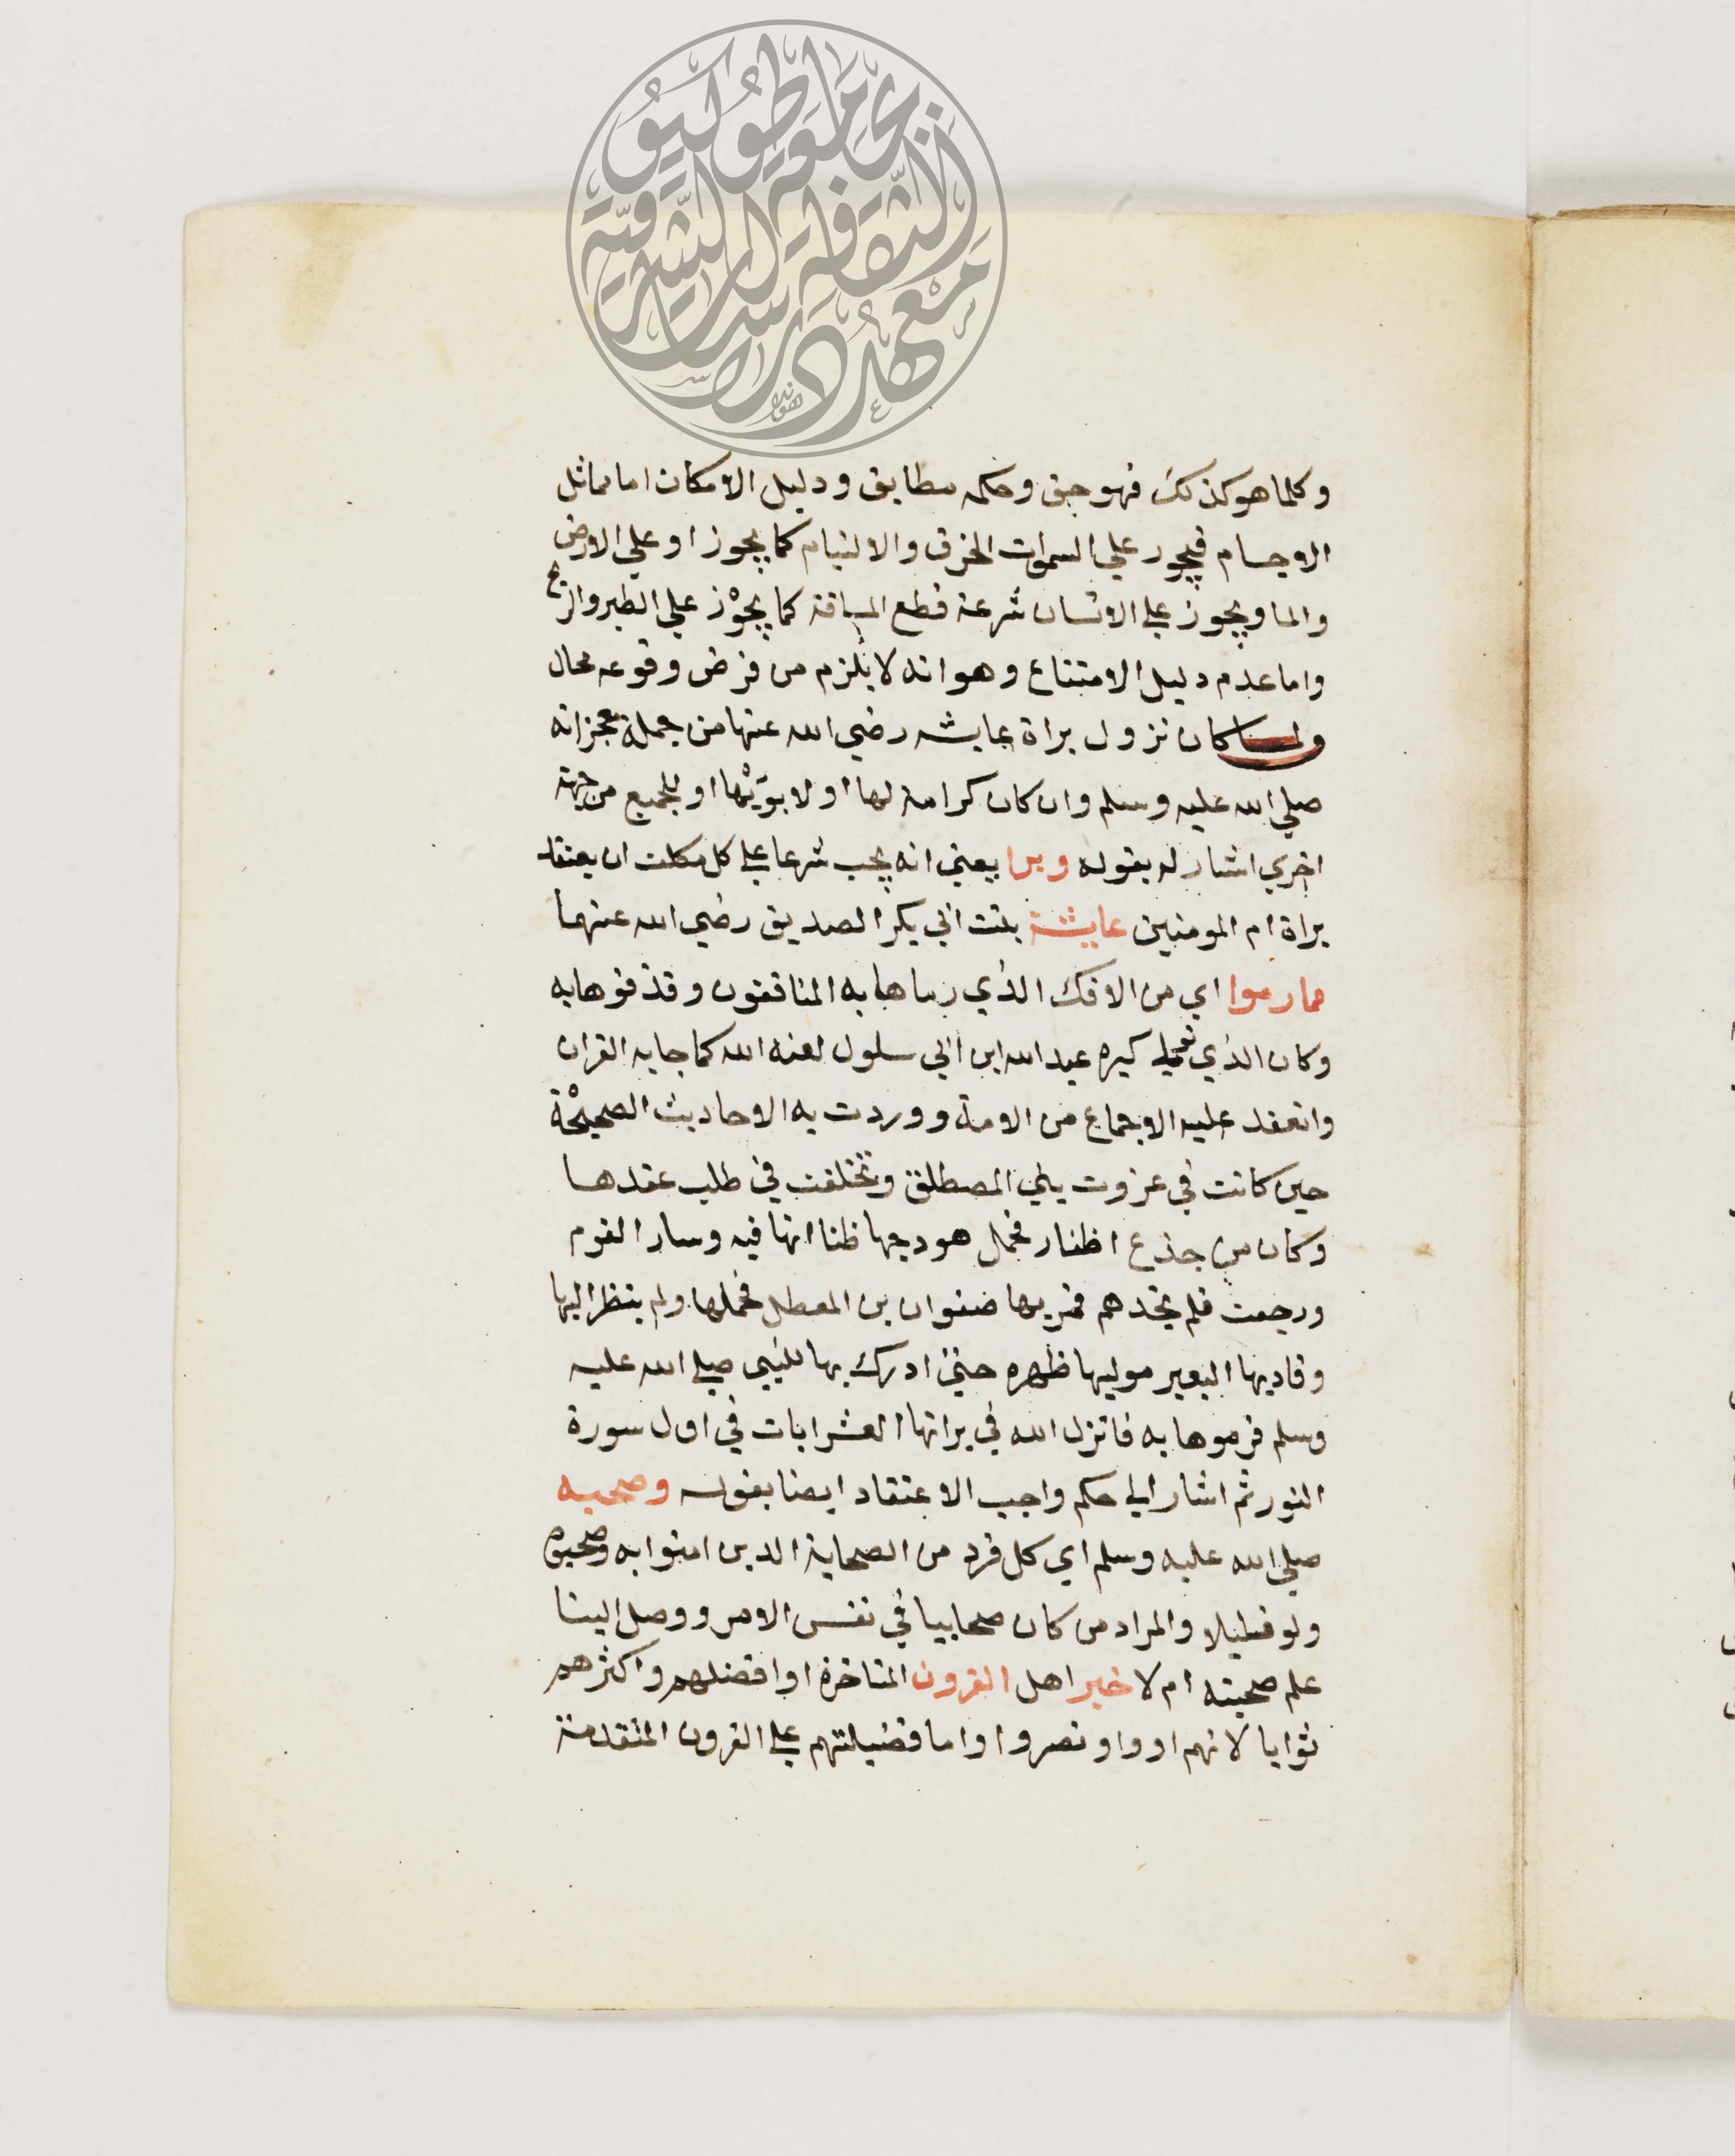 جامعة طوكيو
الثقافة الشرقية
معهد دراسات
وكلما هو كذلك فهو حق وحكمه مطابق ودليل الامكان اما تماثل
الاجسام فيجوز علي السموات الخرق والالتيام كما يجوز او علي الارض
والما ويجوز علي الانسان سرعة قطع المسافة كما يجوز علي الطير والريح
واما عدم دليل الامتناع وهو انه لا يلزم من فرض وقوعه محال
ولما كان نزول براة عايشه رضي الله عنها من جملة معجزاته
صلي الله عليه وسلم وان كان كرامة لها او لابويها او للجميع من جهة
اخري اشار له بقوله وبرا يعني انه يجب شرعا علي كل مكلف ان يعتقد
براة ام المومنين عايشة بنت ابي بكر الصديق رضي الله عنهما
مما رموا اي من الافك الذي رماها به المنافقون وقذفوها به
وكان الذي تولي كبره عبد الله ابن ابي سلول لعنه الله كما جا به القران
وانعقد عليه الاجماع من الامة ووردت به الاحاديث الصحيحة
حين كانت في غزوت بني المصطلق وتخلفت في طلب عقدها
وكان من جذع اظفار فحمل هودجها ظنا انها فيه وسار القوم
ورجعت فلم تجدهم فمر بها صفوان بن المعطل فحملها ولم ينظر اليها
وقاد بها البعير موليها ظهره حتي ادرك بها للنبي صلي الله عليه
وسلم فرموها به فانزل الله في براتها العشر ايات في اول سورة
النور ثم اشار الي حكم واجب الاعتقاد ايضا بقوله وصحبه
صلي الله عليه وسلم اي كل فرد من الصحابة الذين امنوا به وصحبوه
ولو قليلا والمراد من كان صحابيا في نفس الامر ووصل الينا
علم صحبته ام لا خير اهل القرون المتاخرة او افضلهم واكثرهم
ثوابا لانهم اووا ونصروا واما فضيلتهم علي القرون المتقدمة